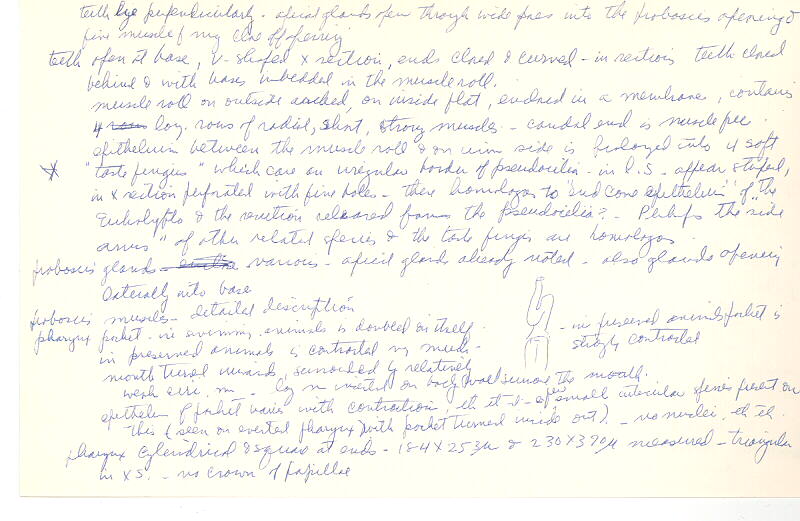 teeth lye perpendicularly - apical glands open through wide pores into the proboscis opening &
fine muscle f my close off opening
teeth open at base, V-shaped x section, ends closed & curved - in sections teeth closed
behind & with bases imbedded in the muscle roll.
muscle roll on outside arched, on inside flat, enclosed in a membrane, contains
4 long. rows of radial, short, strong muscles - caudal end is muscle free
epithelium between the muscle roll & on side is prolonged into 4 soft
"taste fingers" which care an irregular border of pseudocilia - in l.S. appear striped,
in x section perforated with fine holes - these homologos to "end cone epithelium" of "the
Eukalypto & the secretion released forms the pseudocilia? - Perhaps the "side
arms" of other related species & the taste fingers are homologos.
proboscis glands various - apical glands already noted - also glands opening
laterally into base
proboscis muscles - detailed description
pharynx pocket - in swimming animals is doubled on itself. - in preserved animals pocket is
in preserved animals is contracted very much - strongly contracted
mouth turned inwards, surrounded by relatively
weak circ. m - long m insert on body wall surround the mouth.
epithelium of pocket varies with contractions, small fibers present on
this (seen on everted pharynx with pocket turned inside out) - no nuclei,
pharynx cylindrical & square at ends - 184 X 253µ & 230 X 390µ measured - triangular
in XS. - no crown of papillae